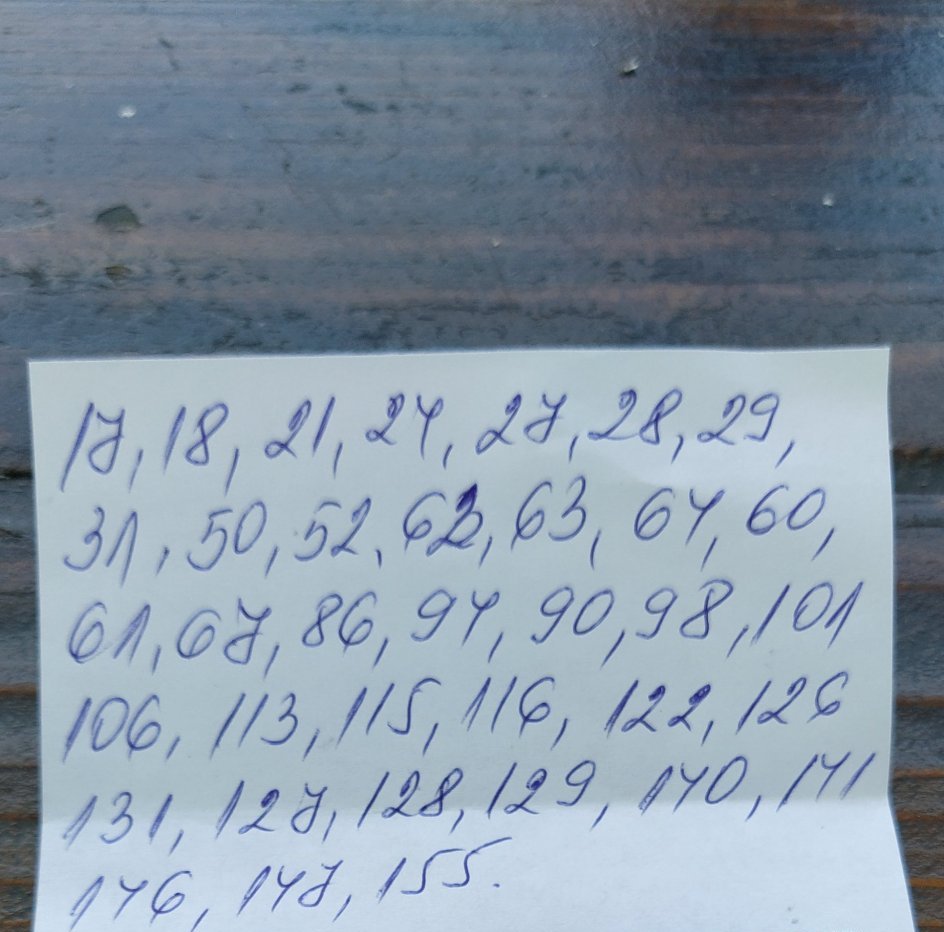 17, 18, 21, 24, 27, 28, 29,
31, 50, 52, 62, 63, 64, 60,
61, 67, 86, 94, 90, 98, 101
106, 113, 115, 116, 122, 126
131, 127, 128, 129, 140, 141
146, 147, 155.